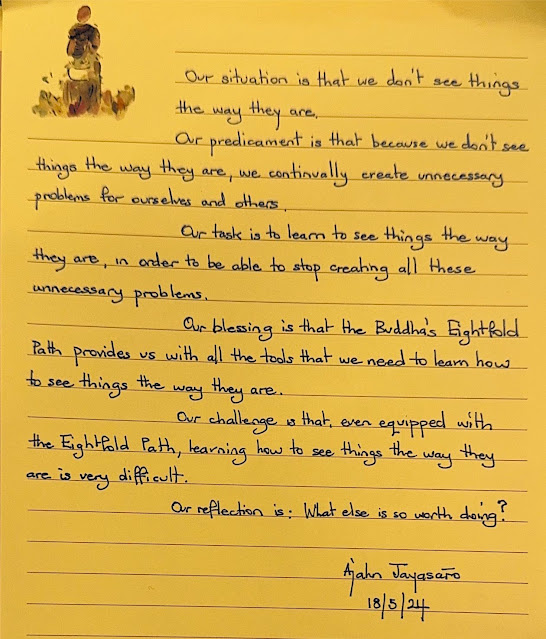 Our situation is that we don't see things
the way they are.
Our predicament is that because we don't see
things the way they are, we continually create unnecessary
problems for ourselves and others.
Our task is to learn to see things the way
they are, in order to be able to stop creating all these
unnecessary problems.
Our blessing is that the Buddha's Eightfold
Path provides us with all the tools that we need to learn how
to see things the way they are.
Our challenge is that, even equipped with
the Eightfold Path, learning how to see things the way they
are is very difficult.
Our reflection is: What else is so worth doing?
Ajahn Jayasaro
18/5/24